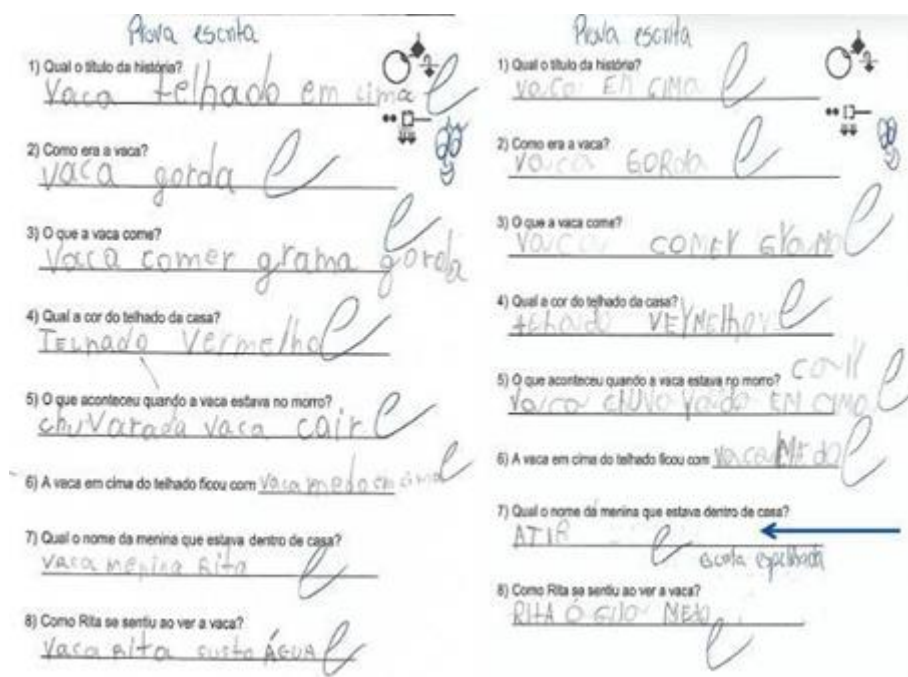 Prova escrita
1) Qual o título da história?
Vaca telhado em cima e
2) Como era a vaca?
vaca gorda e
3) O que a vaca come?
e
Vaca comer grama gorda
4) Qual a cor do telhado da casa?
TELhado vermelho e
5) O que aconteceu quando a vaca estava no morro?
chuvarada vaca cair e
6) A vaca em cima do telhado ficou com vaca medo em cima e
7) Qual o nome da menina que estava dentro de casa?
vaca menina Rita e
8) Como Rita se sentiu ao ver a vaca?
Vaca Rita susto ÁGUA e
Prova escrita
1) Qual o título da história?
vaca EM CIMA e
2) Como era a vaca?
vaca GORDA e
3) O que a vaca come?
vaca COMER GRAMA e
4) Qual a cor do telhado da casa?
telhado VERMELHO e
5) O que aconteceu quando a vaca estava no morro?
vaca CHUVA EM CIMA e
6) A vaca em cima do telhado ficou com vaca MEDO e
7) Qual o nome da menina que estava dentro de casa?
ATIR e
escrita espelhada
8) Como Rita se sentiu ao ver a vaca?
RITA MEDO
e